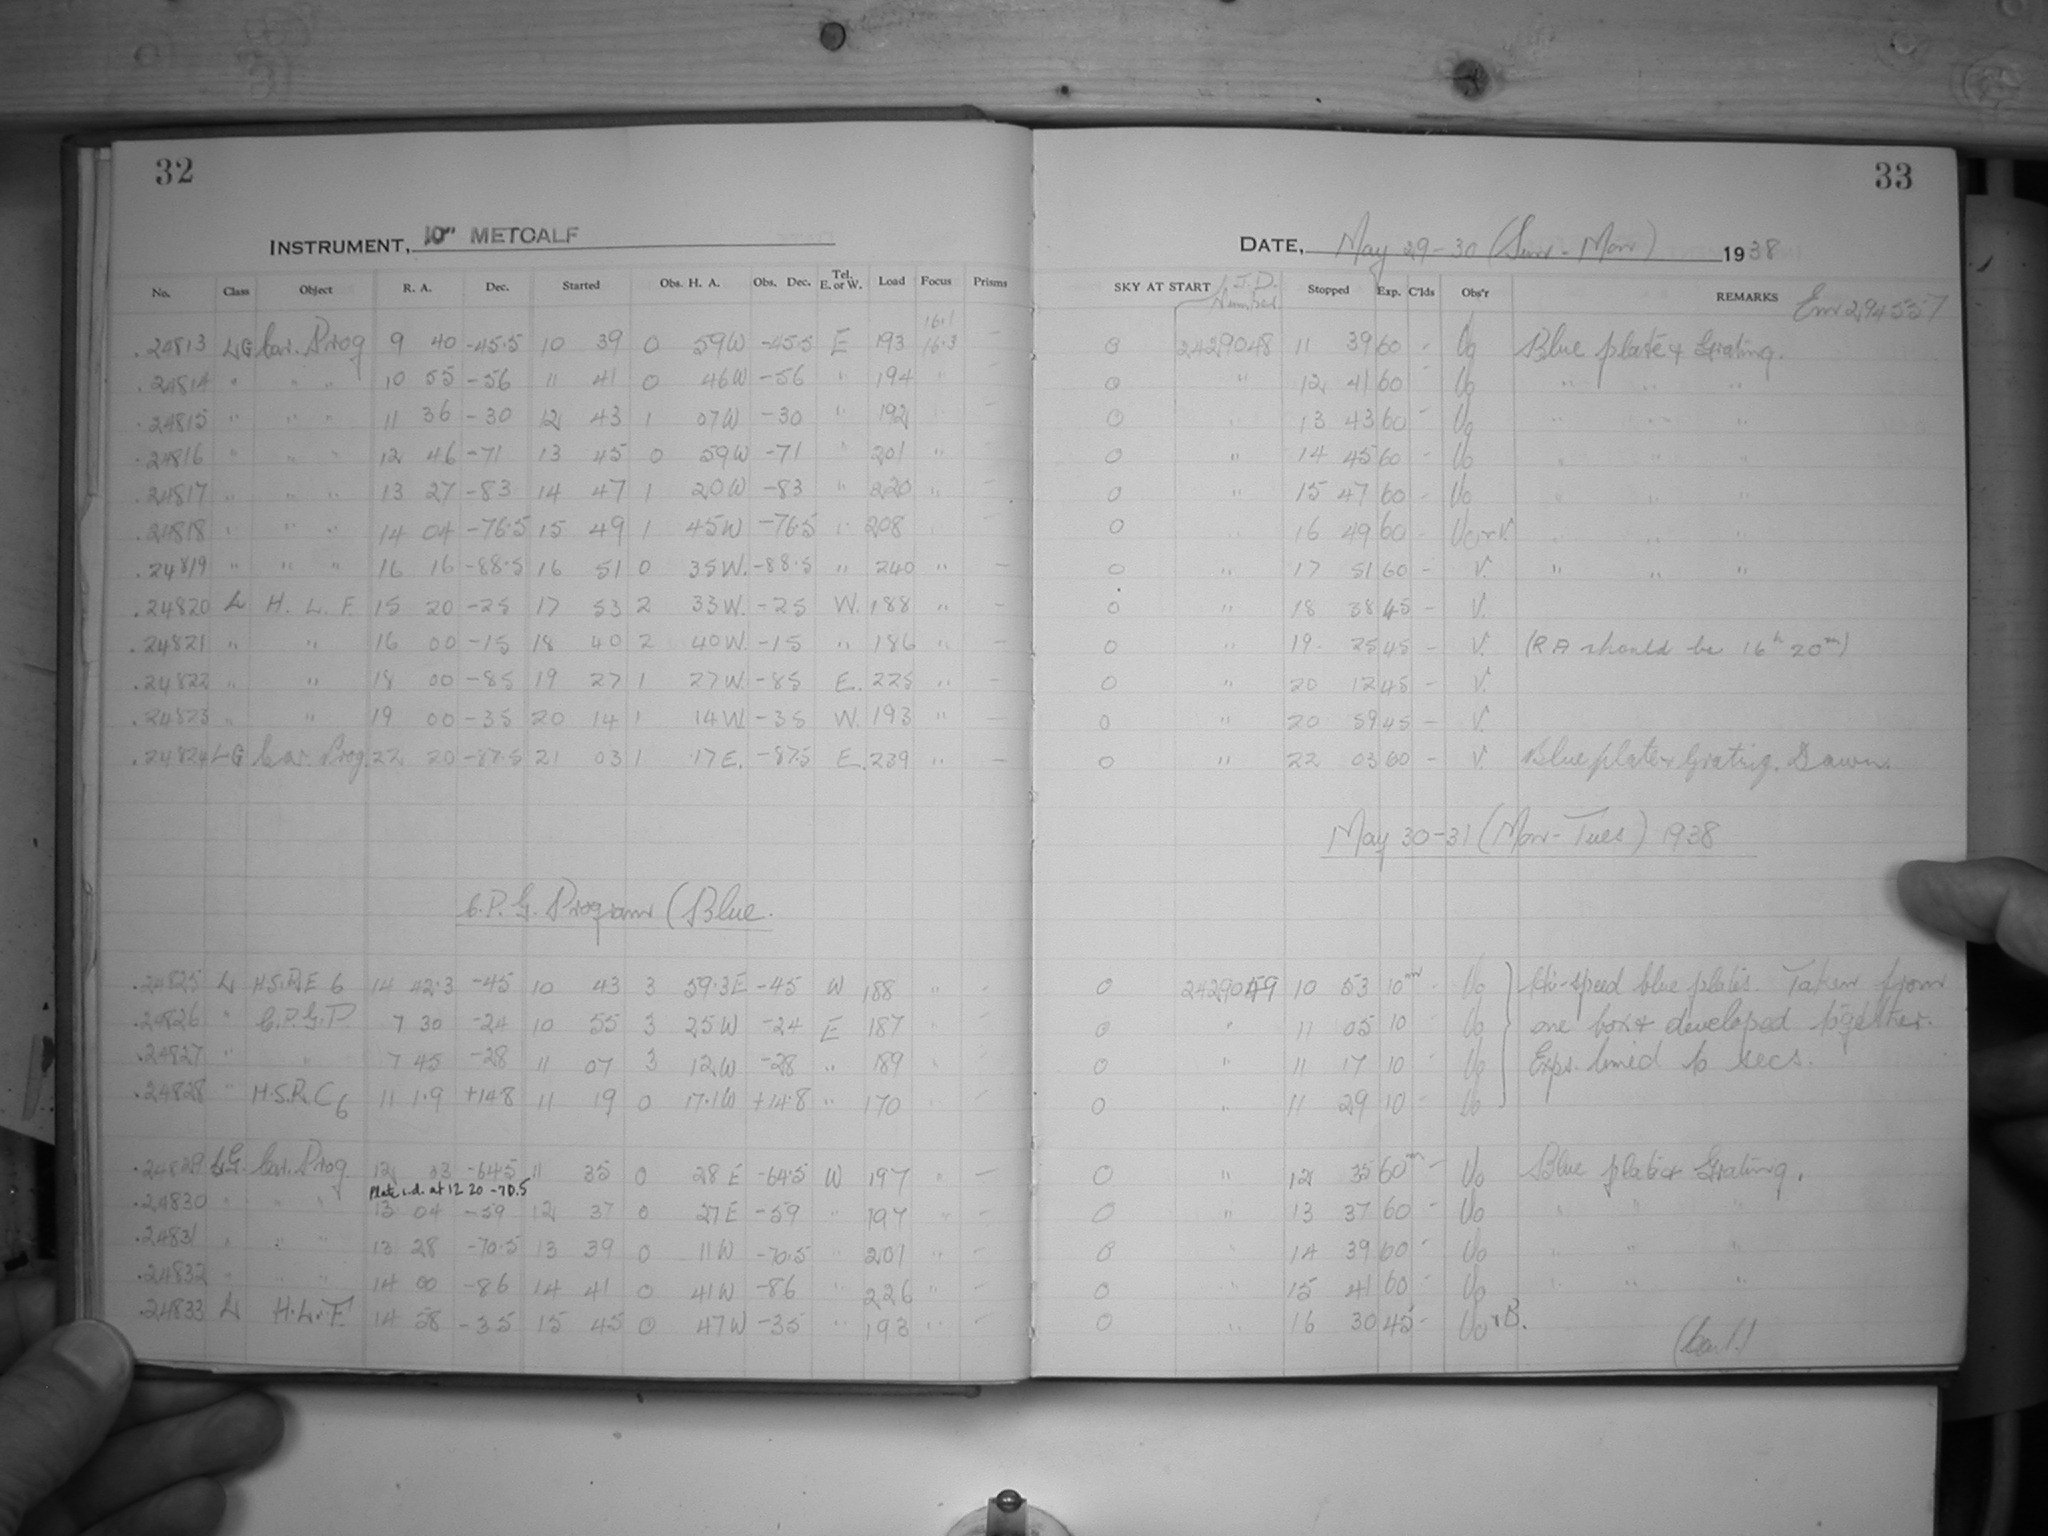 32
INSTRUMENT, 10" METCALF
No. Class Object R. A. Dec. Started Obs. H. A. Obs. Dec. Tel. E. or W. Load Focus Prisms
.24813 LG Car. Prog 9 40 -45.5 10 39 0 59W -45.5 E 193 16.1 16.3 -
.24814 " " " 10 55 -56 11 41 0 46W -56 " 194 " -
.24815 " " " 11 36 -30 12 43 1 07W -30 " 192 -
.24816 " " " 12 46 -71 13 45 0 59W -71 " 201 " -
.24817 " " " 13 27 -83 14 47 1 20W -83 " 220 " -
.24818 " " " 14 04 -76.5 15 49 1 45W -76.5 " 208 -
.24819 " " " 16 16 -88.5 16 51 0 35W. -88.5 " 240 " -
.24820 L H. L. F. 15 20 -25 17 53 2 33W. -25 W. 188 " -
.24821 " " 16 00 -15 18 40 2 40W. -15 " 186 " -
.24822 " " 18 00 -85 19 27 1 27W. -85 E. 225 " -
.24823 " " 19 00 -35 20 14 1 14W. -35 W. 193 " -
.24824 LG Car. Prog. 22 20 -87.5 21 03 1 17E. -87.5 E. 239 " -
C.P.G. Program (Blue.
.24825 L H.S.R.E 6 14 42.3 -45 10 43 3 59.3E -45 W 188 " -
.24826 " C.P.G.P 7 30 -24 10 55 3 25W -24 E 187 " -
.24827 " " 7 45 -28 11 07 3 12W -28 " 189 " -
.24828 " H.S.R. C6 11 1.9 +14.8 11 19 0 17.1W +14.8 " 170 " -
.24829 LG. Car. Prog 12 03 -64.5 11 35 0 28E -64.5 W 197 " -
Plate i.d. at 12 20 -70.5
.24830 " " " 13 04 -59 12 37 0 27E -59 " 197 " -
.24831 " " " 13 28 -70.5 13 39 0 11W -70.5 " 201 " -
.24832 " " " 14 00 -86 14 41 0 41W -86 " 226 " -
.24833 L H.L.F. 14 58 -35 15 45 0 47W -35 " 193 " -
33
DATE, May 29-30 (Sun - Mon) 1938
SKY AT START J.D. Number Stopped Exp. C'lds Obs'r REMARKS Em 294557
0 2429048 11 39 60 - Uo Blue plate & Grating.
0 " 12 41 60 - Uo " " "
0 " 13 43 60 - Uo " " "
0 " 14 45 60 - Uo " " "
0 " 15 47 60 - Uo " " "
0 " 16 49 60 - Uo + V. " " "
0 " 17 51 60 - V. " " "
0 " 18 38 45 - V.
0 " 19. 25 45 - V. (R.A should be 16h 20m)
0 " 20 12 45 - V.
0 " 20 59 45 - V.
0 " 22 03 60 - V. Blue plate & Grating. Dawn.
May 30-31 (Mon-Tues) 1938
0 2429049 10 53 10m - Uo Hi-speed blue plates. Taken from
0 " 11 05 10 Uo one box & developed together.
0 " 11 17 10 Uo Exps. timed to secs.
0 " 11 29 10 - Uo
0 " 12 35 60m - Uo Blue plate & Grating.
0 " 13 37 60 - Uo " " "
0 " 14 39 60 - Uo " " "
0 " 15 41 60 - Uo " " "
0 " 16 30 45 - Uo + B.
(Cont.)